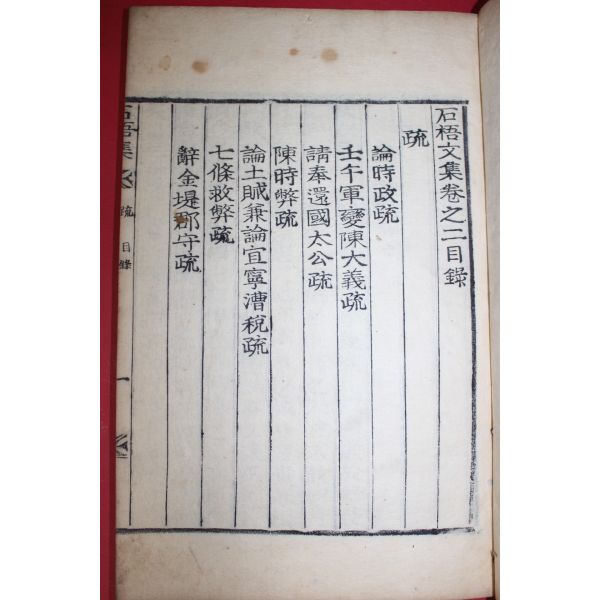 石梧文集卷之二目錄
疏
論時政疏
壬午軍變陳大義疏
請奉還國太公疏
陳時弊疏
論土賊兼論宜寧漕稅疏
七條救弊疏
辭金堤郡守疏
石梧集 卷二 疏 目錄 一